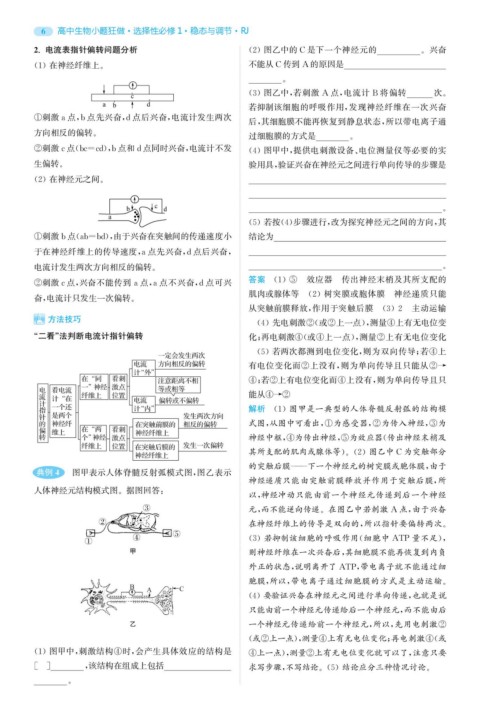 6 高中生物小题狂做·选择性必修1·稳态与调节·RJ
2. 电流表指针偏转问题分析
(1) 在神经纤维上。
a b c d
①刺激a点,b点先兴奋,d点后兴奋,电流计发生两次
方向相反的偏转。
②刺激c点(bc=cd),b点和d点同时兴奋,电流计不发
生偏转。
(2) 在神经元之间。
a b c d
①刺激b点(ab=bd),由于兴奋在突触间的传递速度小
于在神经纤维上的传导速度,a点先兴奋,d点后兴奋,
电流计发生两次方向相反的偏转。
②刺激c点,兴奋不能传到a点,a点不兴奋,d点可兴
奋,电流计只发生一次偏转。
方法技巧
“二看”法判断电流计指针偏转
电流计指针的偏转
看电流计“在一个还是两个”神经纤维上
在“同一”神经纤维上
看刺激点位置
电流计“外”
一定会发生两次方向相反的偏转
注意距离不相等或相等
电流计“内”
偏转或不偏转
在“两个”神经纤维上
看刺激点位置
在突触前膜的神经纤维上
发生两次方向相反的偏转
在突触后膜的神经纤维上
发生一次偏转
典例4 图甲表示人体脊髓反射弧模式图,图乙表示
人体神经元结构模式图。据图回答:
① ② ③ ④ ⑤
甲
A B C
乙
(1) 图甲中,刺激结构④时,会产生具体效应的结构是
[ ]______,该结构在组成上包括____________
______。
(2) 图乙中的C是下一个神经元的________。兴奋
不能从C传到A的原因是____________________
______。
(3) 图乙中,若刺激A点,电流计B将偏转______次。
若抑制该细胞的呼吸作用,发现神经纤维在一次兴奋
后,其细胞膜不能再恢复到静息状态,所以带电离子通
过细胞膜的方式是______。
(4) 图甲中,提供电刺激设备、电位测量仪等必要的实
验用具,验证兴奋在神经元之间进行单向传导的步骤是
____________________________________
____________________________________
____________________________________。
(5) 若按(4)步骤进行,改为探究神经元之间的方向,其
结论为______________________________
____________________________________
____________________________________。
答案 (1) ⑤ 效应器 传出神经末梢及其所支配的
肌肉或腺体等 (2) 树突膜或胞体膜 神经递质只能
从突触前膜释放,作用于突触后膜 (3) 2 主动运输
(4) 先电刺激②(或②上一点),测量④上有无电位变
化;再电刺激④(或④上一点),测量②上有无电位变化
(5) 若两次都测到电位变化,则为双向传导;若④上
有电位变化而②上没有,则为单向传导且只能从②→
④;若②上有电位变化而④上没有,则为单向传导且只
能从④→②
解析 (1) 图甲是一典型的人体脊髓反射弧的结构模
式图,从图中可看出,①为感受器,②为传入神经,③为
神经中枢,④为传出神经,⑤为效应器(传出神经末梢及
其所支配的肌肉或腺体等)。(2) 图乙中C为突触部分
的突触后膜——下一个神经元的树突膜或胞体膜,由于
神经递质只能由突触前膜释放并作用于突触后膜,所
以,神经冲动只能由前一个神经元传递到后一个神经
元,而不能逆向传递。在图乙中若刺激A点,由于兴奋
在神经纤维上的传导是双向的,所以指针要偏转两次。
(3) 若抑制该细胞的呼吸作用(细胞中ATP量不足),
则神经纤维在一次兴奋后,其细胞膜不能再恢复到内负
外正的状态,说明离开了ATP,带电离子就不能通过细
胞膜,所以,带电离子通过细胞膜的方式是主动运输。
(4) 要验证兴奋在神经元之间进行单向传递,也就是说
只能由前一个神经元传递给后一个神经元,而不能由后
一个神经元传递给前一个神经元,所以,先用电刺激②
(或②上一点),测量④上有无电位变化;再电刺激④(或
④上一点),测量②上有无电位变化就可以了,注意只要
求写步骤,不写结论。(5) 结论应分三种情况讨论。